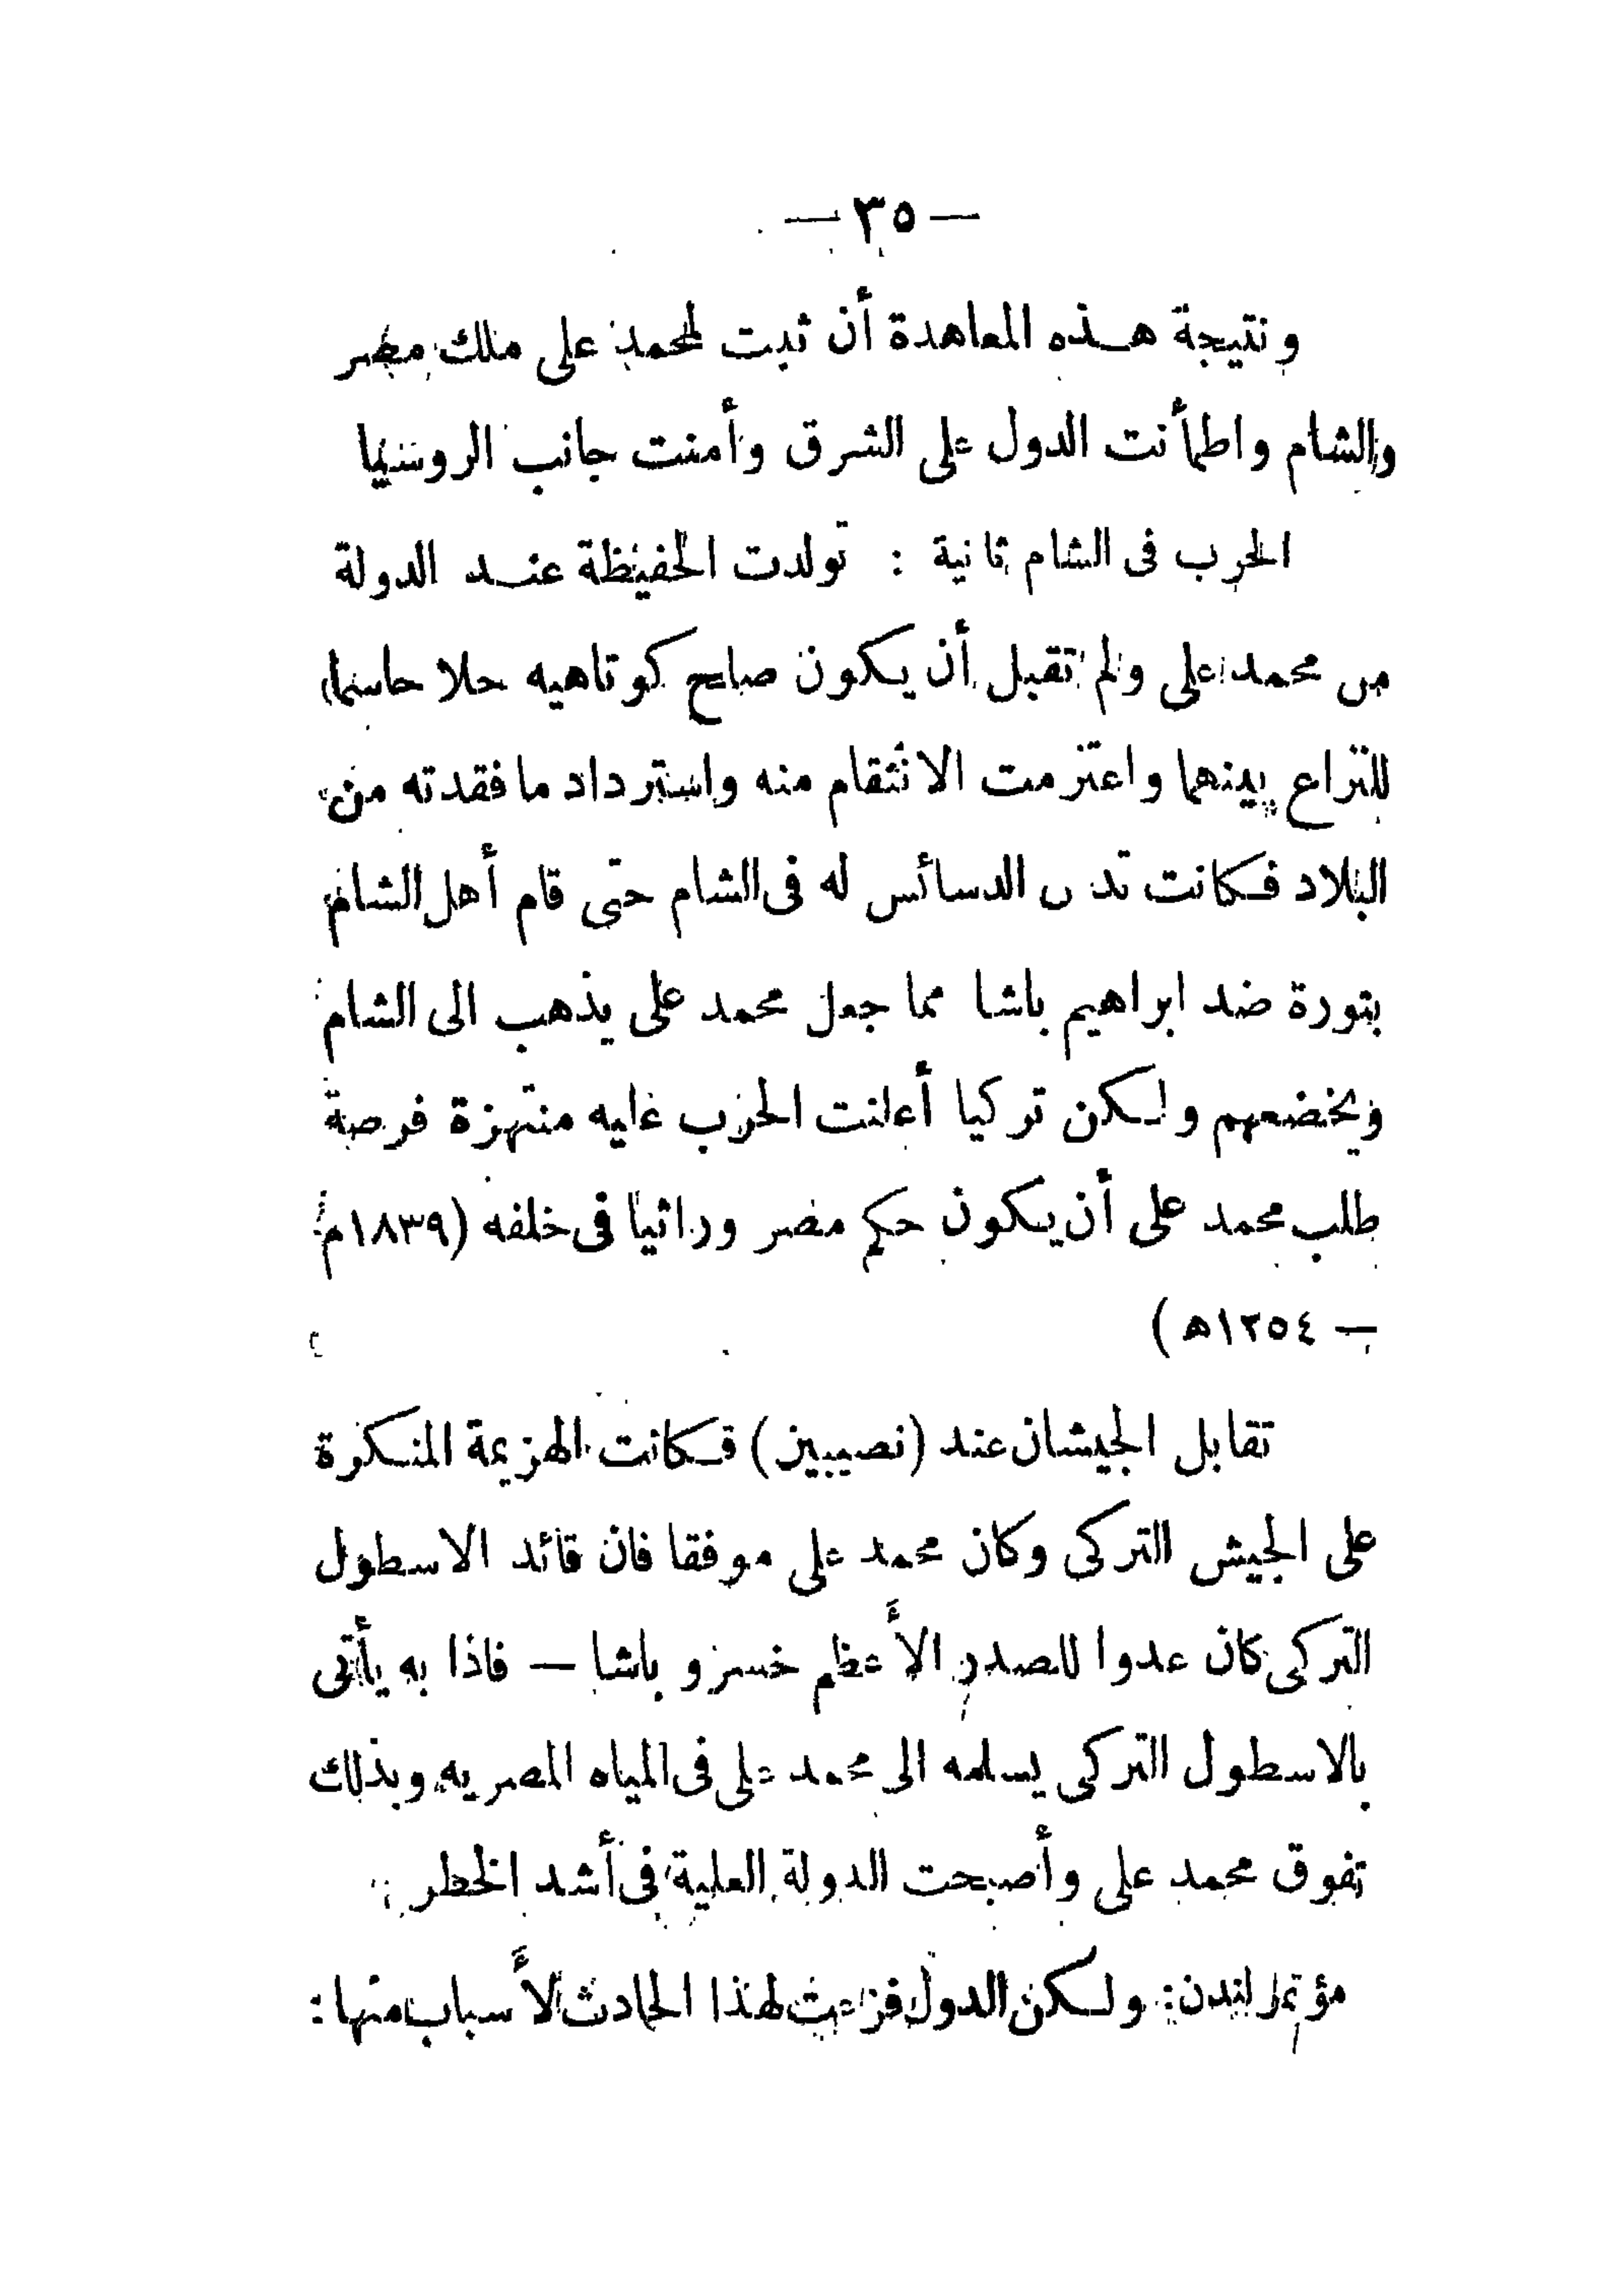 — ٣٥ —
ونتيجة هذه المعاهدة أن ثبت لمحمد على ملك مصر
والشام واطمأنت الدول على الشرق وأمنت جانب الروسيا
الحرب فى الشام ثانية : تولدت الحفيظة عند الدولة
من محمد على ولم تقبل أن يكون صلح كوتاهيه حلا حاسما
للنزاع بينهما واعتزمت الانتقام منه واسترداد ما فقدته من
البلاد فكانت تدس الدسائس له فى الشام حتى قام أهل الشام
بثورة ضد ابراهيم باشا مما جعل محمد على يذهب الى الشام
ويخضعهم ولكن تركيا أعلنت الحرب عليه منتهزة فرصة
طلب محمد على أن يكون حكم مصر وراثيا فى خلفه (١٨٣٩م
— ١٢٥٤ﻫ )
تقابل الجيشان عند (نصيبين) فكانت الهزيمة المنكرة
على الجيش التركى وكان محمد على موفقا فان قائد الاسطول
التركى كان عدوا للصدر الأعظم خسرو باشا — فاذا به يأتى
بالاسطول التركى يسلمه الى محمد على فى المياه المصريه وبذلك
تفوق محمد على وأصبحت الدولة العلية فى أشد الخطر
مؤتمر لندن: ولكن الدول فزعت لهذا الحادث لأسباب منها :